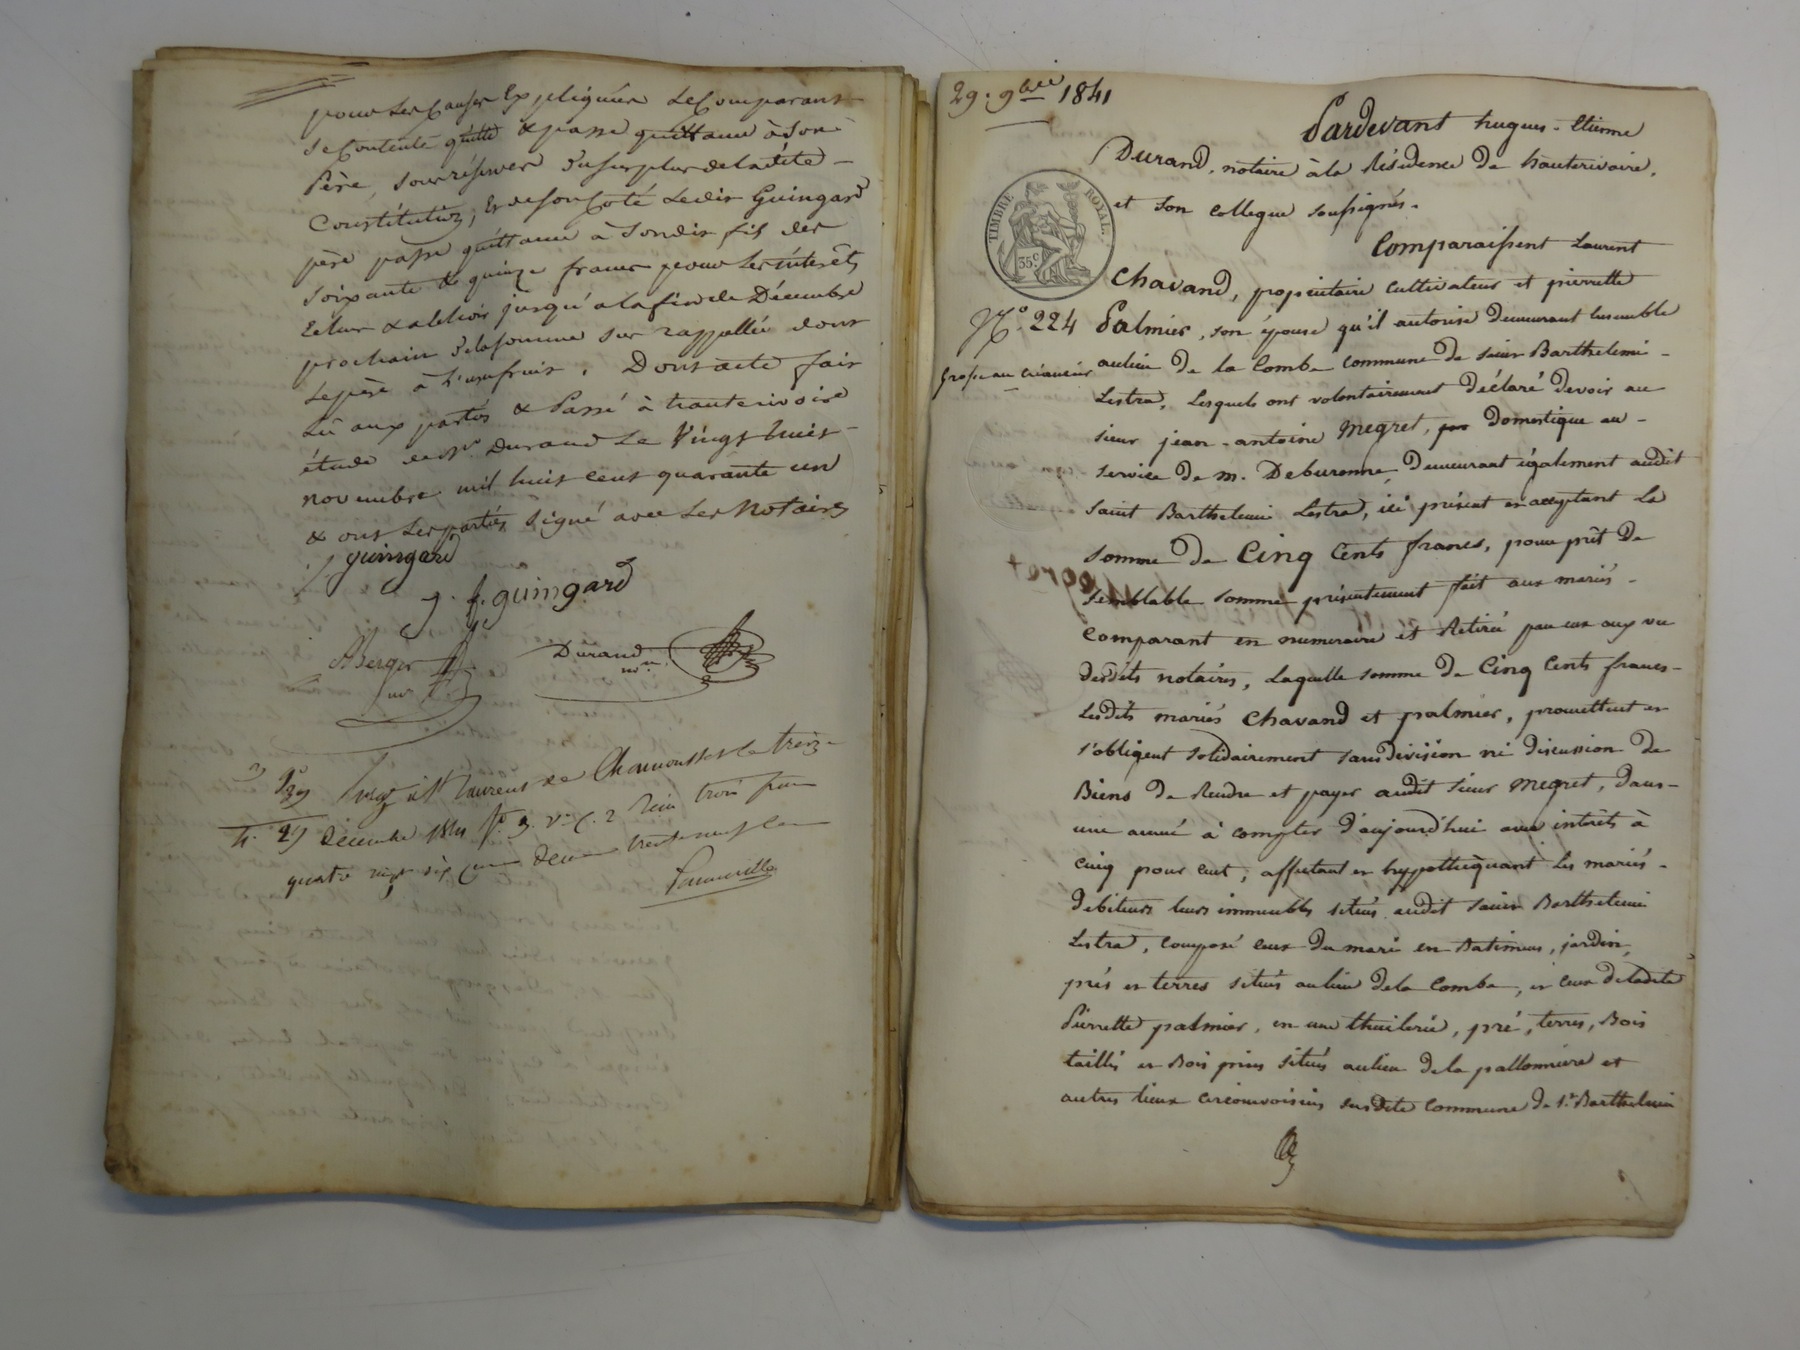 pour les causes Expliquées le Comparant
se Contente quitte & passe quittance à son
Père, sous réserves du surplus de la dite
Constitution, & de son Coté ledit Guingard
père passe quittance à son dit fils des
soixante & quinze francs pour les intérêts
Echus & à échoir jusqu'à la fin de Décembre
prochain de la somme sus rappellée dont
le père à l'usufruit. Dont acte fait
Lu aux parties & Passé à hauterivoire
étude de Me. Durand Le Vingt huit
novembre mil huit cent quarante un
& ont les parties signé avec les Notaires
J guingard
g. f. guingard
ABerger
nre
Durand
nore.
Enrg. à St laurent de Chamousset le treize
décembre 1841 fo. 3. vo. C. 2 Reçu trois francs
quatre vingt dix centimes
29. 9bre 1841
Pardevant hugues-Etienne
Durand, notaire à la Résidence de hauterivoire,
et son collegue soussignés.
TIMBRE ROYAL.
35c.
Comparaissent Laurent
Chavand, propriétaire cultivateur et pierrette
No. 224 Palmier, son épouse qu'il autorise demeurant ensemble
Grosse au créancier
au lieu de la Combe commune de Saint Barthelemi
Lestra, Lesquels ont volontairement déclaré devoir au
sieur jean-antoine Megret, domestique au
service de m. Deburonne, demeurant également audit
Saint Barthelemi Lestra, ici présent et acceptant La
somme de Cinq Cents francs, pour prêt de
semblable somme présentement fait aux mariés
comparant en numeraire et Retirée par eux aux vu
desdits notaires, Laquelle somme de Cinq Cents francs
Lesdits mariés Chavand et palmier, promettent et
s'obligent solidairement sans division ni discussion de
Biens de Rendre et payer audit sieur Megret, dans
une année à compter d'aujourd'hui avec intérêts à
cinq pour cent, affectant et hypothéquant les mariés
débiteurs leurs immeubles situés audit Saint Barthelemi
Lestra, composé ceux du mari en Batimens, jardin,
prés et terres situés au lieu de la Combe, et ceux de ladite
Pierrette palmier, en une thuilerie, pré, terres, Bois
taillis et Bois pins situés au lieu de la pallonniere et
autres lieux circonvoisins susdite commune de St. Barthelemi